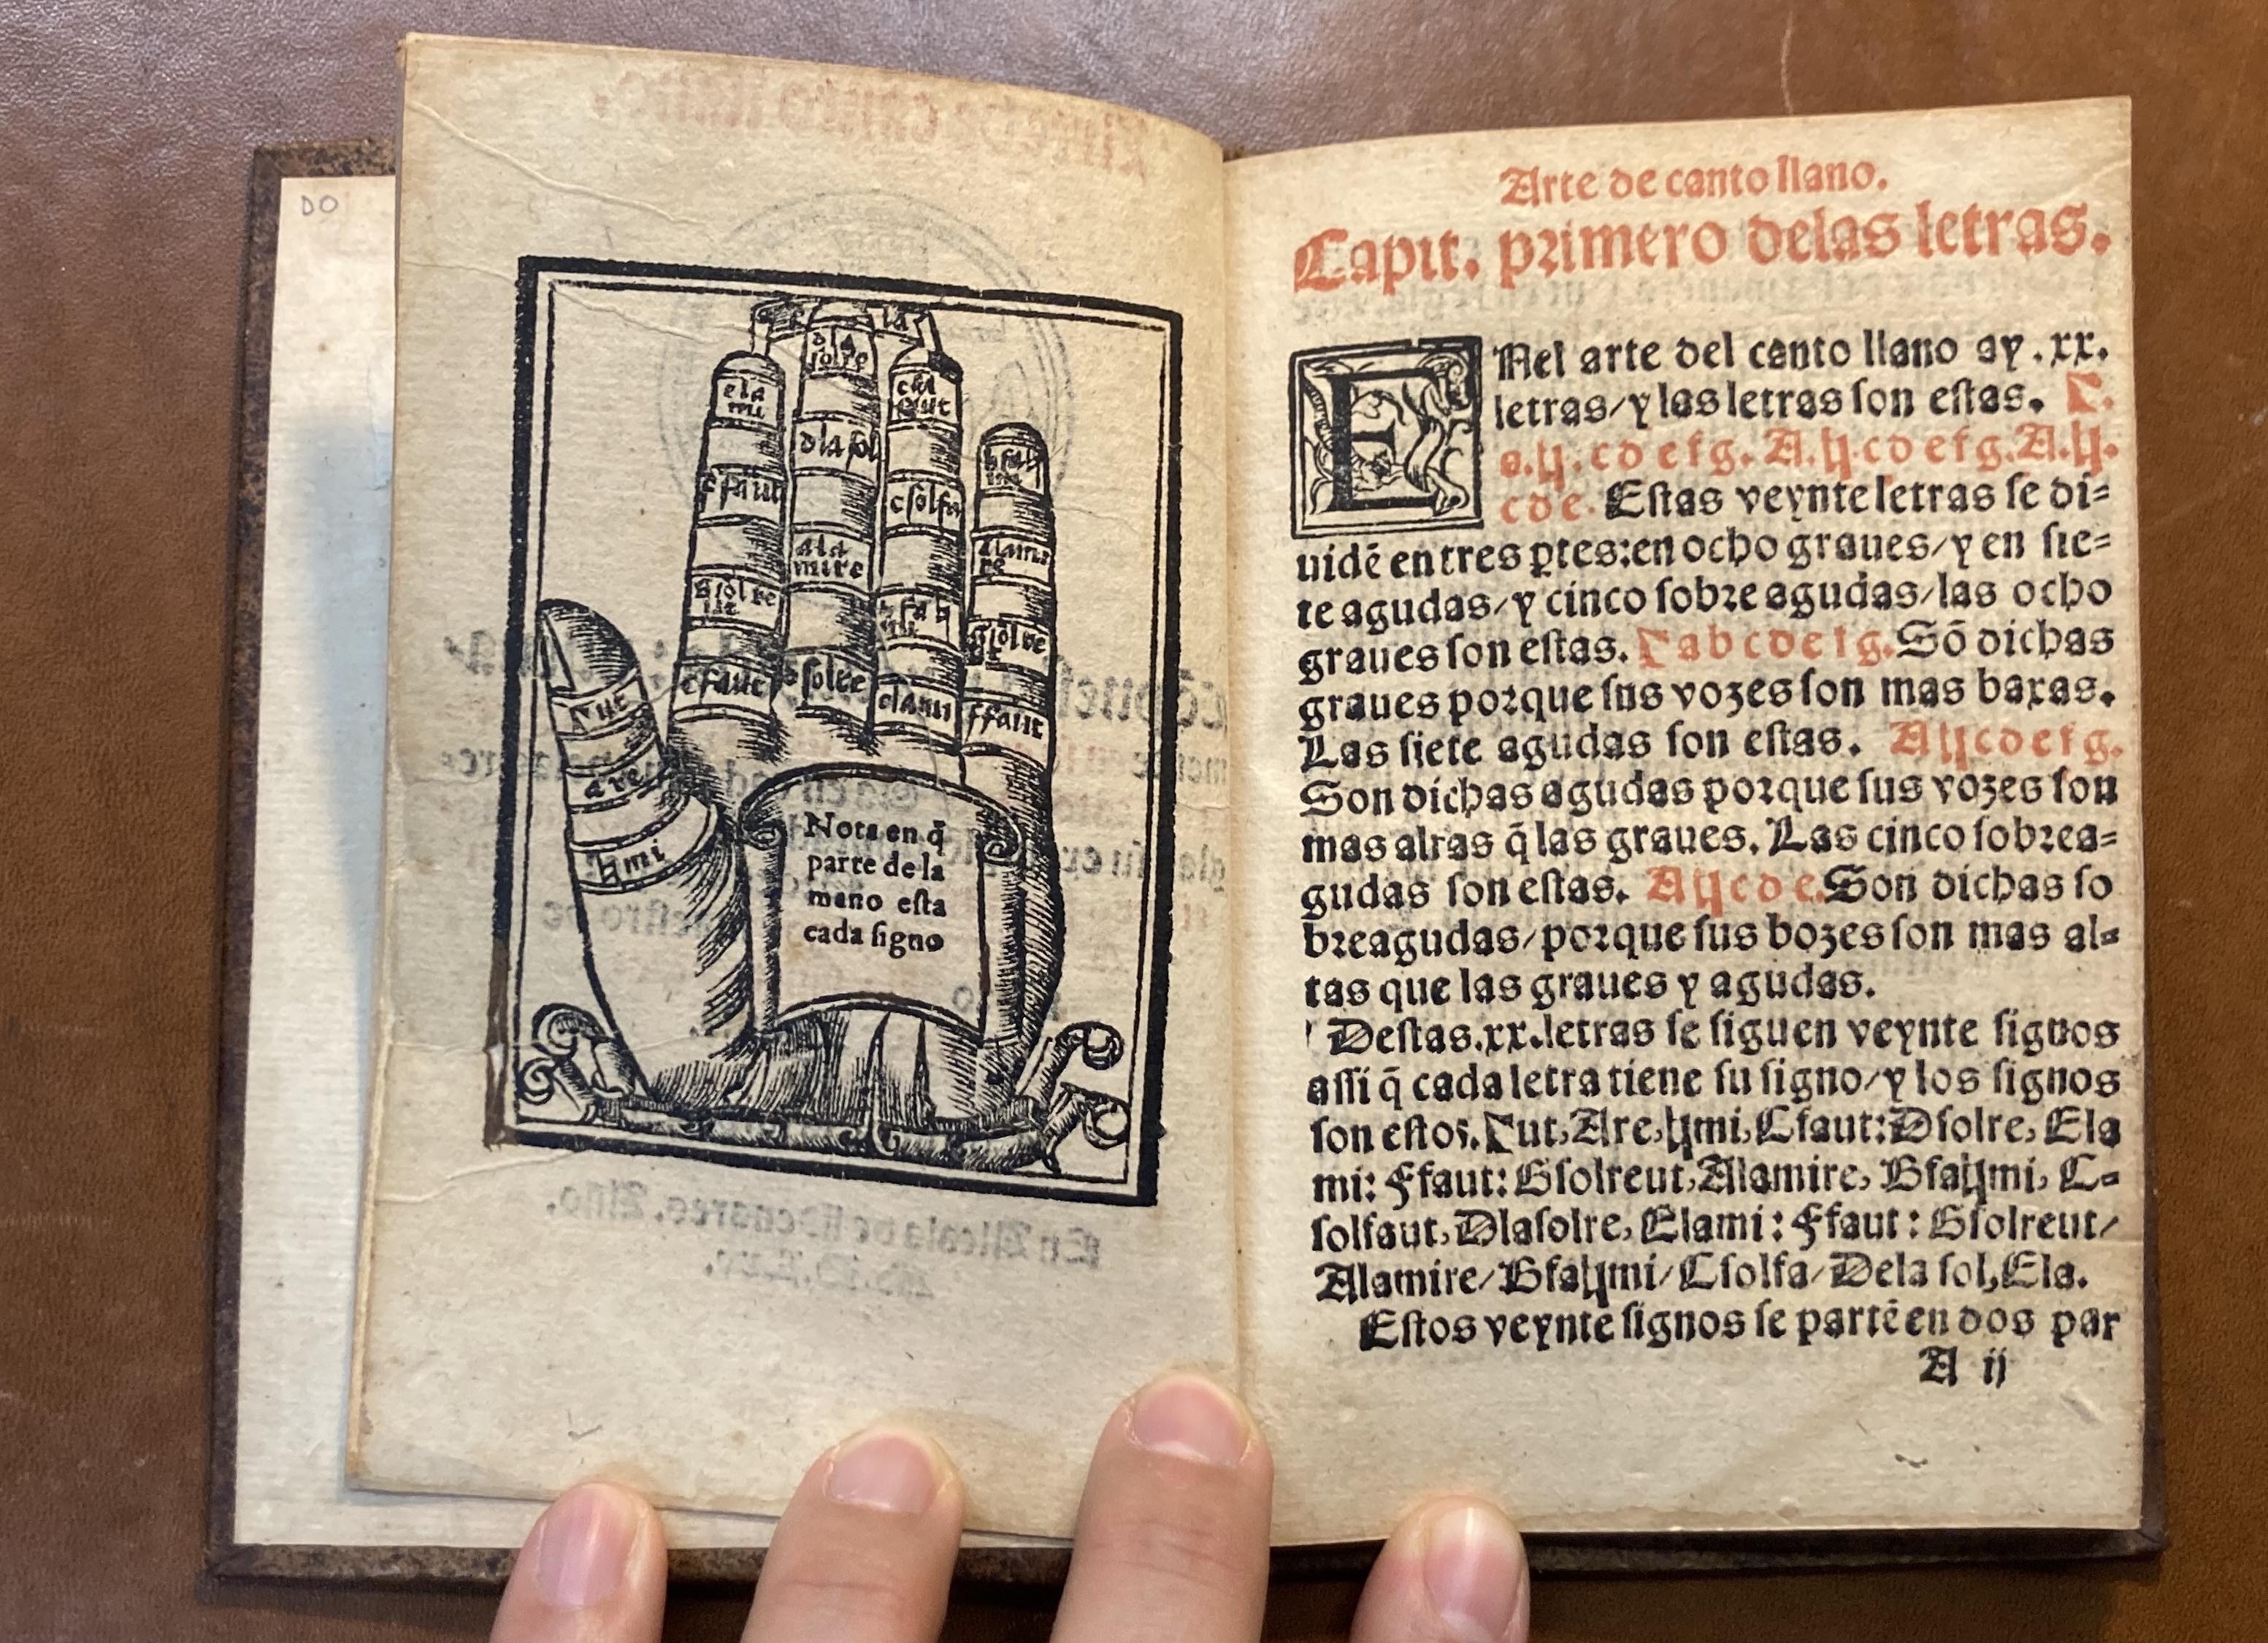 DO
la
dla
solre
ela
mi
dla sol
ffaut
csolfa
ala
mire
alami
re
gsolre
ut
gsolre
ut
cfaut
dsolre
elami
ffaut
Γut
are
♮mi
Nota en q̄
parte de la
mano esta
cada signo
Arte de canto llano.
Capit. primero delas letras.
ENel arte del canto llano ay .xx.
letras/y las letras son estas. Γ.
a.♮.c d e f g. A.♮.c d e f g. A.♮.
c d e. Estas veynte letras se di=
uidē en tres ꝑtes:en ocho graues/y en sie=
te agudas/y cinco sobre agudas/las ocho
graues son estas. Γ a b c d e f g. Sō dichas
graues porque sus vozes son mas baxas.
Las siete agudas son estas. A ♮ c d e f g.
Son dichas agudas porque sus vozes son
mas altas q̄ las graues. Las cinco sobrea=
gudas son estas. A ♮ c d e. Son dichas so
breagudas/porque sus bozes son mas al=
tas que las graues y agudas.
Destas.xx.letras se siguen veynte signos
assi q̄ cada letra tiene su signo/y los signos
son estos. Γut, Are, ♮mi, Cfaut: Dsolre, Ela
mi: Ffaut: Gsolreut, Alamire, Bfa♮mi, C=
solfaut, Dlasolre, Elami: Ffaut: Gsolreut/
Alamire/Bfa♮mi/Csolfa/Dela sol, Ela.
Estos veynte signos se partē en dos par
A ij